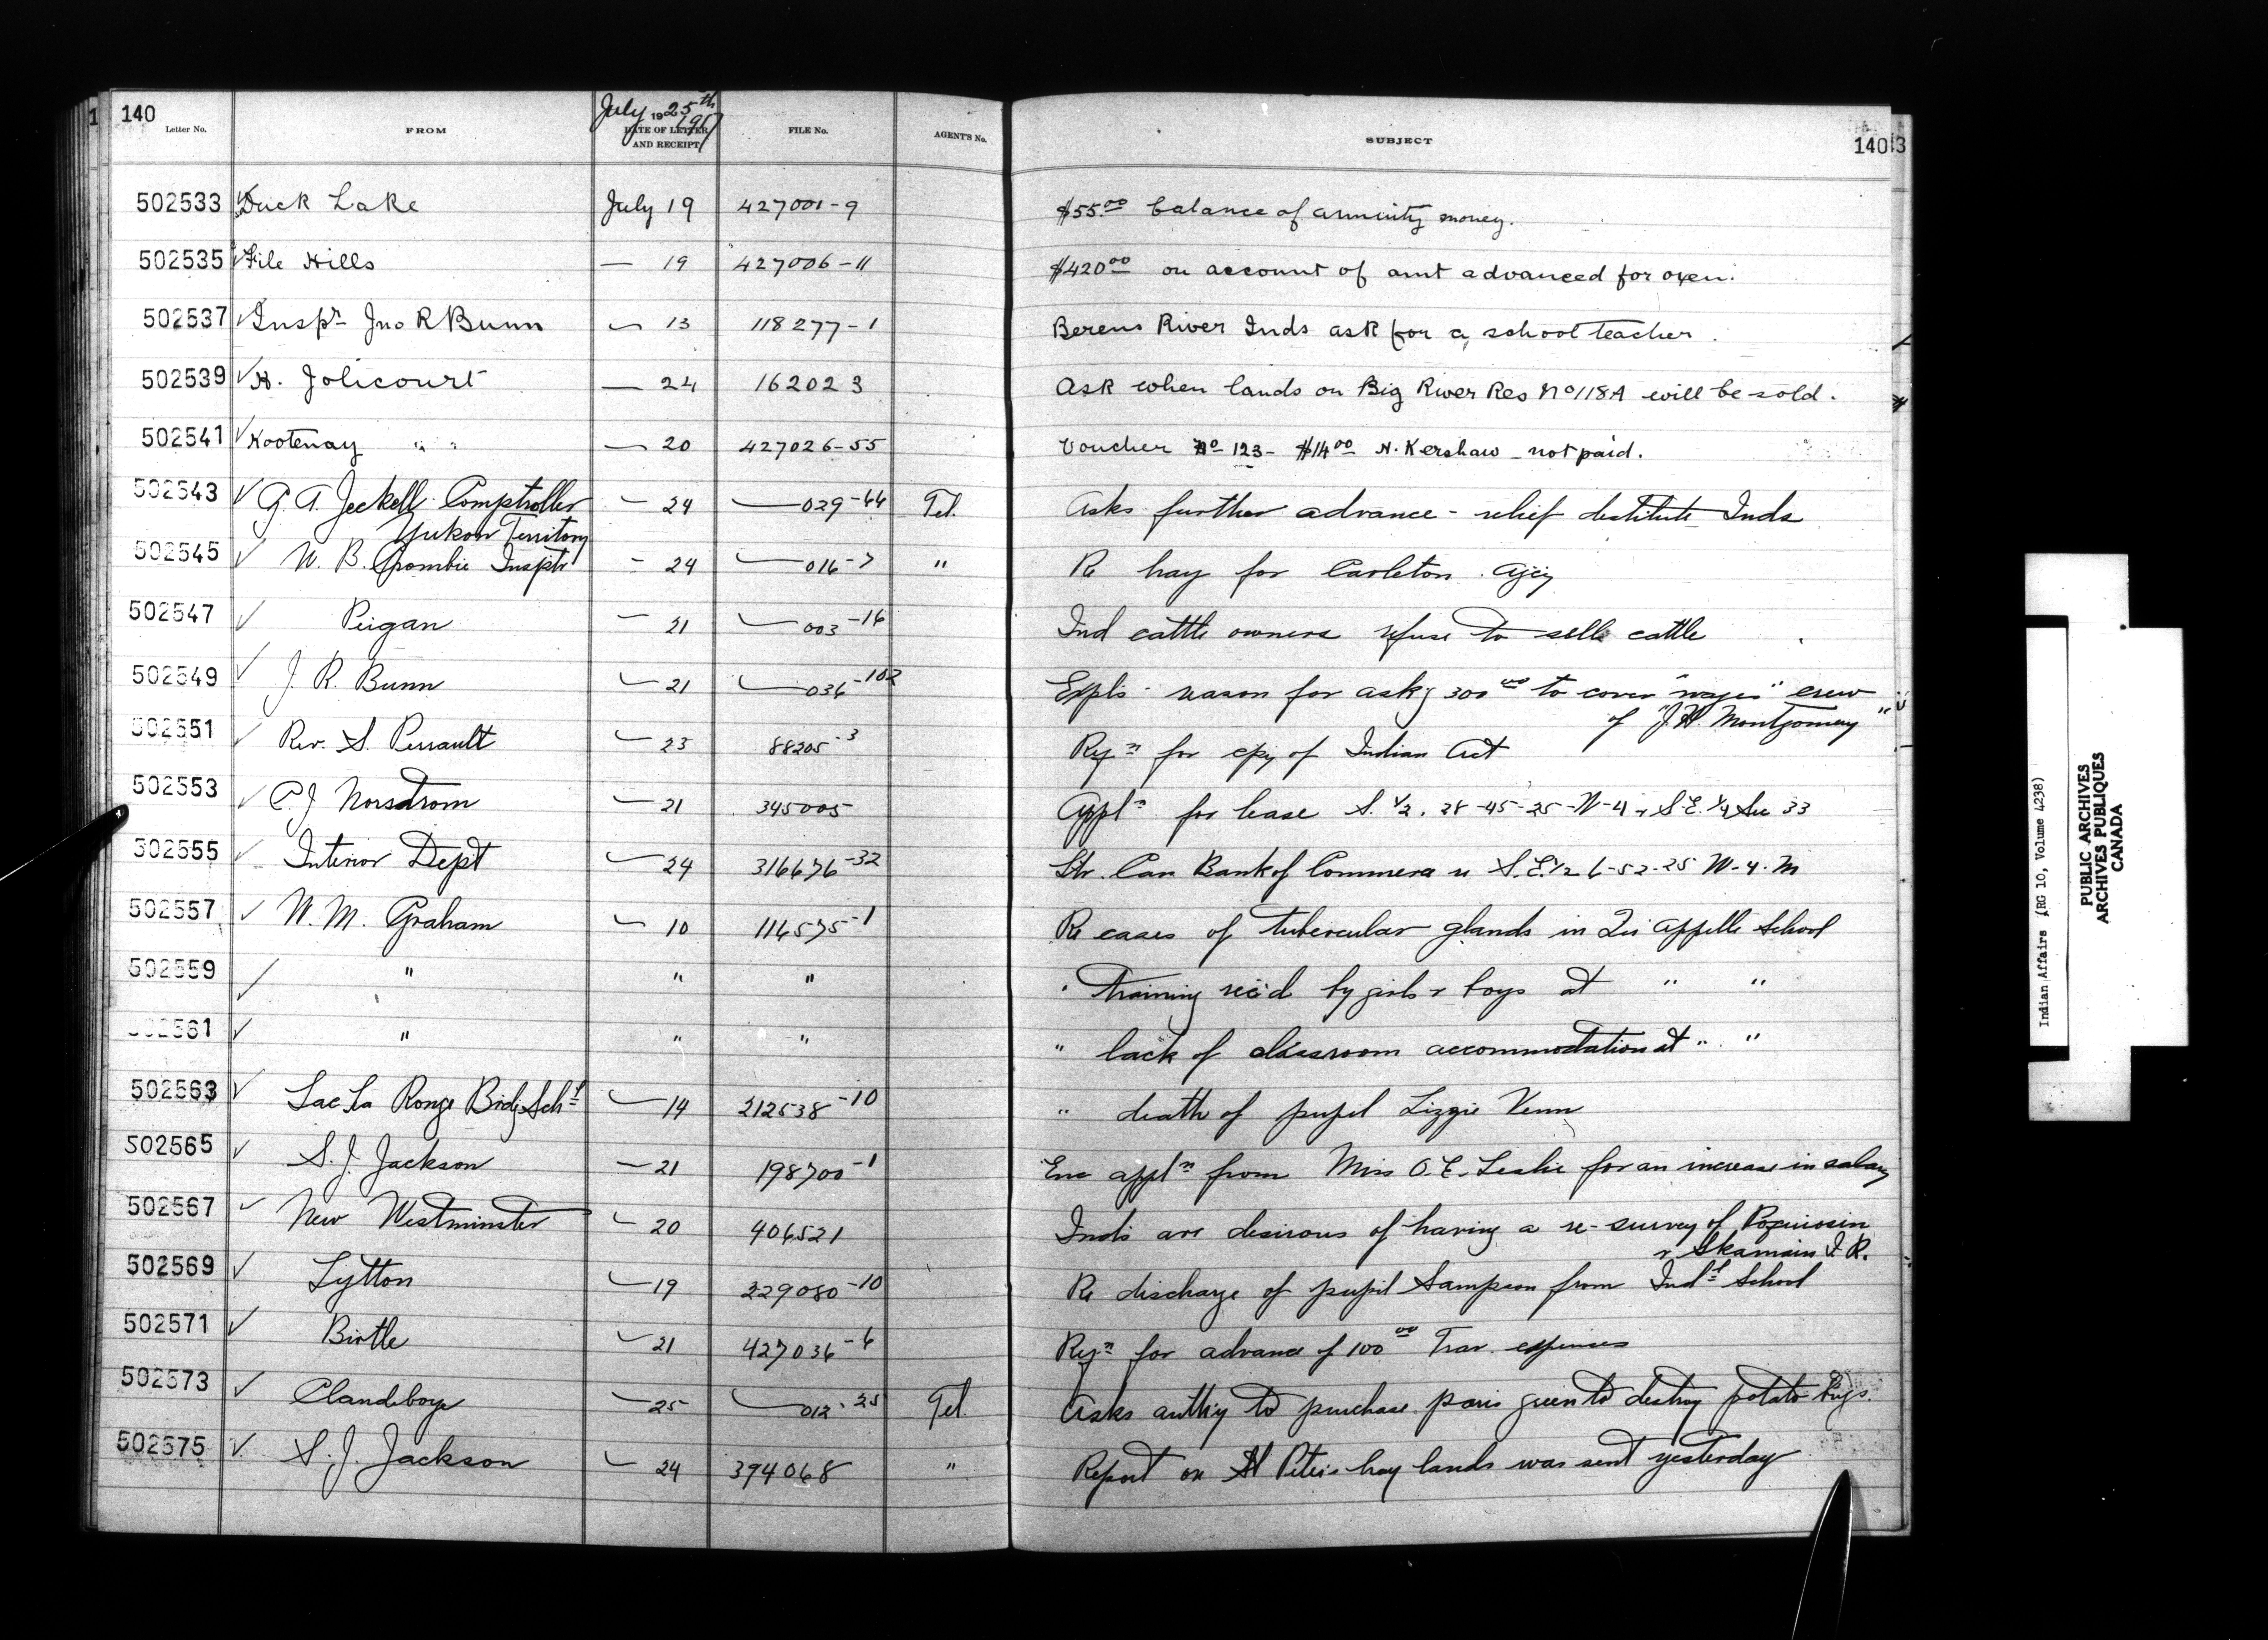 140
July 25th 1917
Letter No. FROM DATE OF LETTER AND RECEIPT FILE No. AGENT'S No. SUBJECT 140 3
502533 Duck Lake July 19 427001-9 $55.00 balance of annuity money.
502535 File Hills — 19 427006-11 $420.00 on account of amt advanced for oxen.
502537 Inspr Jno R Bunn — 13 118277-1 Berens River Inds ask for a school teacher.
502539 H. Jolicourt — 24 162023 Ask when lands on Big River Res No 118A will be sold.
502541 Kootenay " " — 20 427026-55 Voucher No 123- $14.00 H. Kershaw - not paid.
502543 G. A. Jeckell Comptroller — 24 — 029-44 Tel. Asks further advance - relief destitute Inds
Yukon Territory
502545 W. B. Crombie Insptr - 24 — 016-7 " Re hay for Carleton Agcy
502547 Peigan — 21 — 003-16 Ind cattle owners refuse to sell cattle
502549 J. R. Bunn — 21 — 036-102 Expls reason for askg 300.00 to cover "wages" crew
of "J. H. Montgomery"
502551 Rev. S. Perrault — 23 88205-3 Reqn for cpy of Indian Act
502553 C. J. Norsdrom — 21 345005 Appln for lease S. 1/2. 28-45-25-W-4 & S.E. 1/4 Sec 33
502555 Interior Dept — 24 316676-32 Ltr. Can Bank of Commerce re S.E. 1/2 6-52-25 W-4-M
502557 W. M. Graham — 10 114575-1 Re cases of tubercular glands in Qu'appelle School
502559 " " " " Training rec'd by girls & boys at " "
502561 " " " " lack of classroom accommodation at " "
502563 Lac La Ronge Brdg Schl — 14 212538-10 " death of pupil Lizzie Venn
502565 S. J. Jackson — 21 198700-1 Enc appln from Miss O. E. Leslie for an increase in salary
502567 New Westminster — 20 406521 Inds are desirous of having a re-survey of
& Skamain I. R.
502569 Lytton — 19 229080-10 Re discharge of pupil Sampson from Indl School
502571 Birtle — 21 427036-6 Reqn for advance of 100.00 Trav. expenses
502573 Clandeboye — 25 — 012-25 Tel. Asks authy to purchase paris green to destroy potato bugs.
502575 S. J. Jackson — 24 394068 " Report on St Peter's hay lands was sent yesterday
Indian Affairs (RG 10, Volume 4238)
PUBLIC ARCHIVES
ARCHIVES PUBLIQUES
CANADA